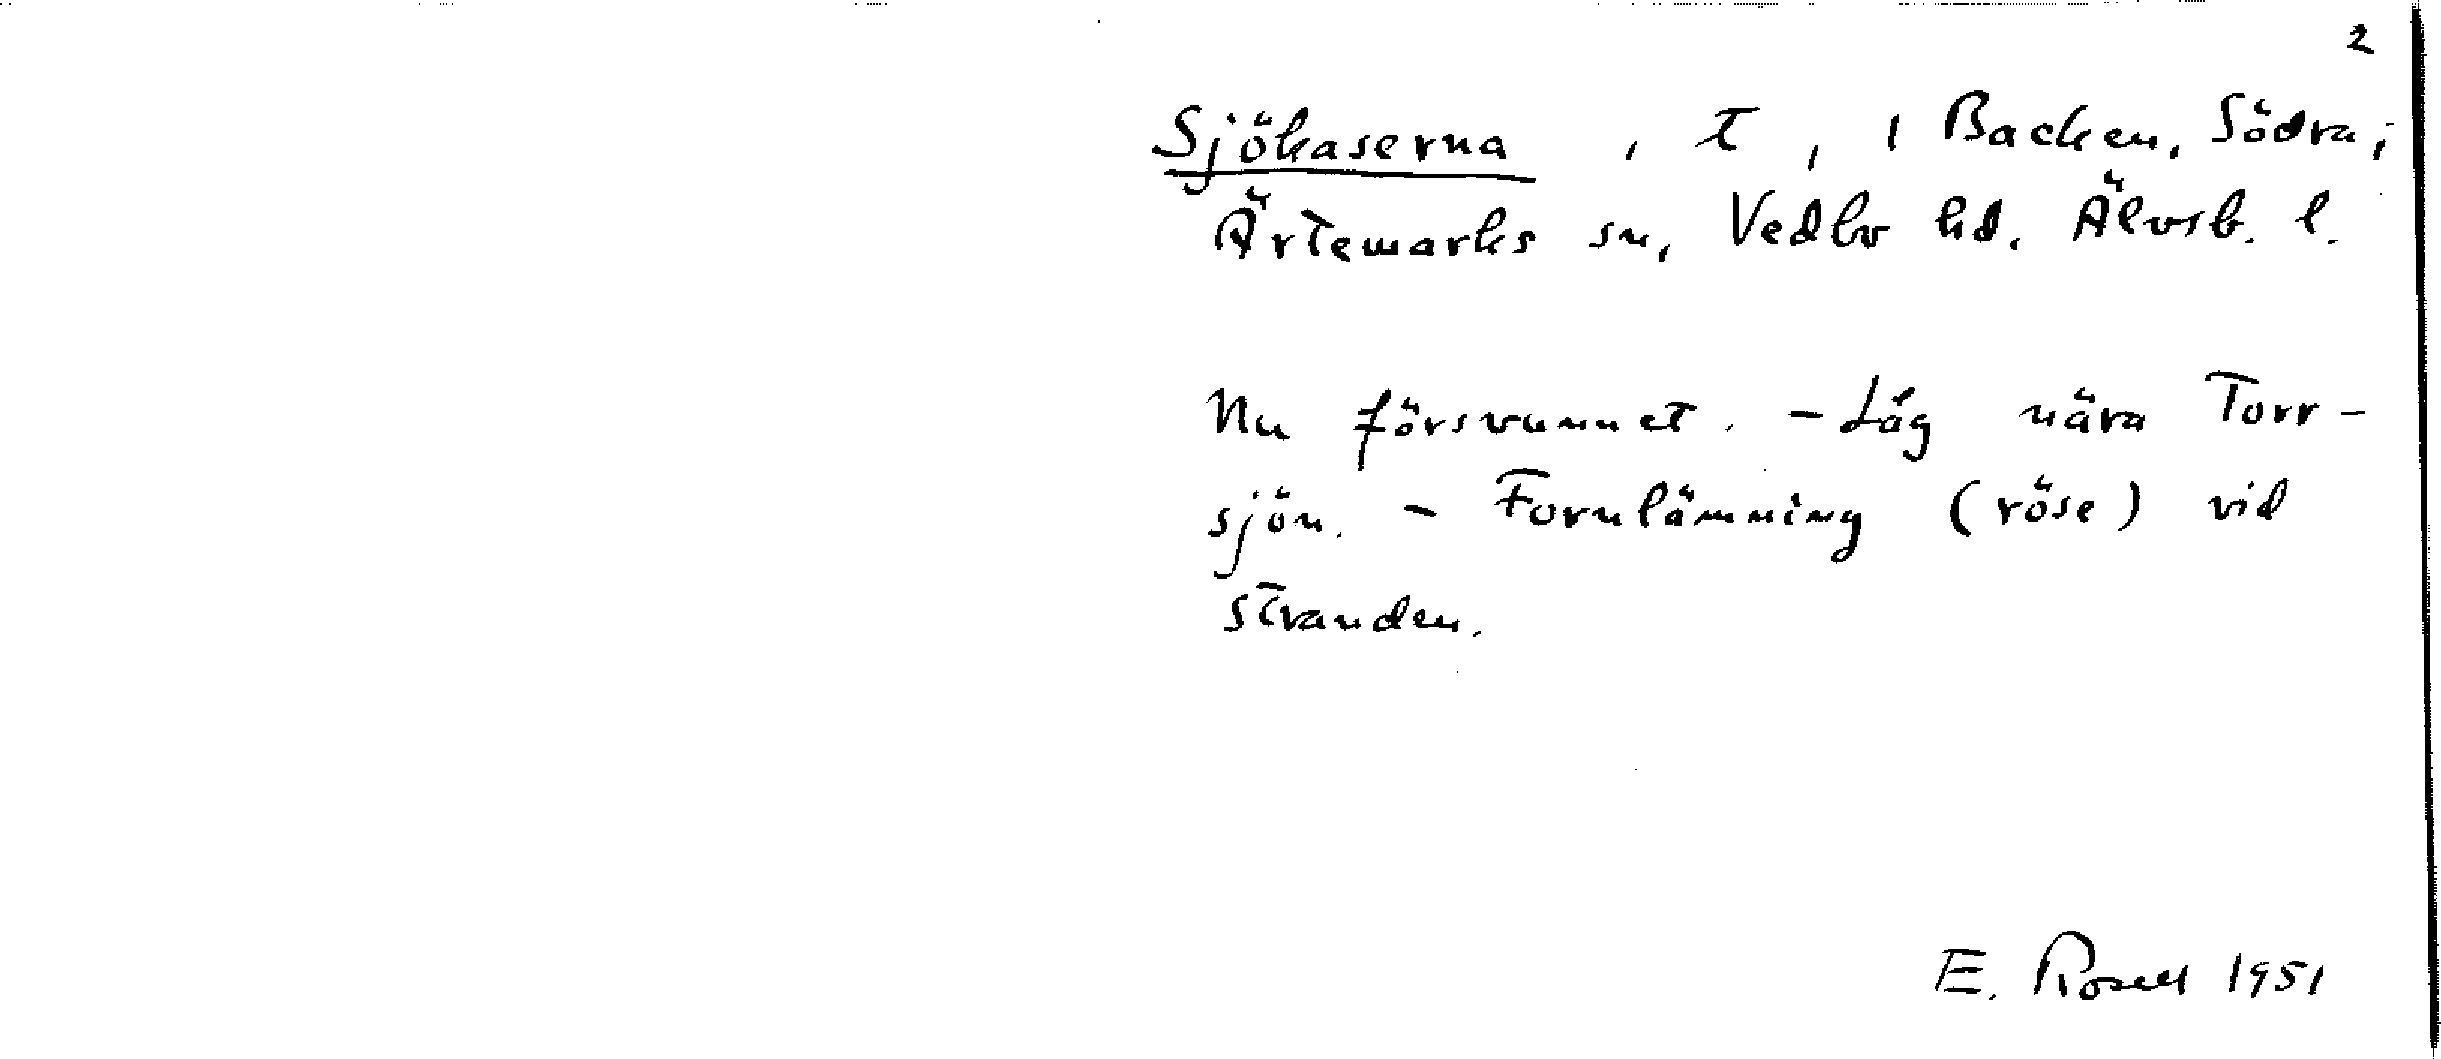 2
Sjökaserna, t, 1 Backen, Södra;
Ärtemarks sn, Vedbo hd. Älvsb. l.
Nu försvunnet. - Låg nära Torr-
sjön. - Fornlämning (röse) vid
stranden.
E. Rosell 1951